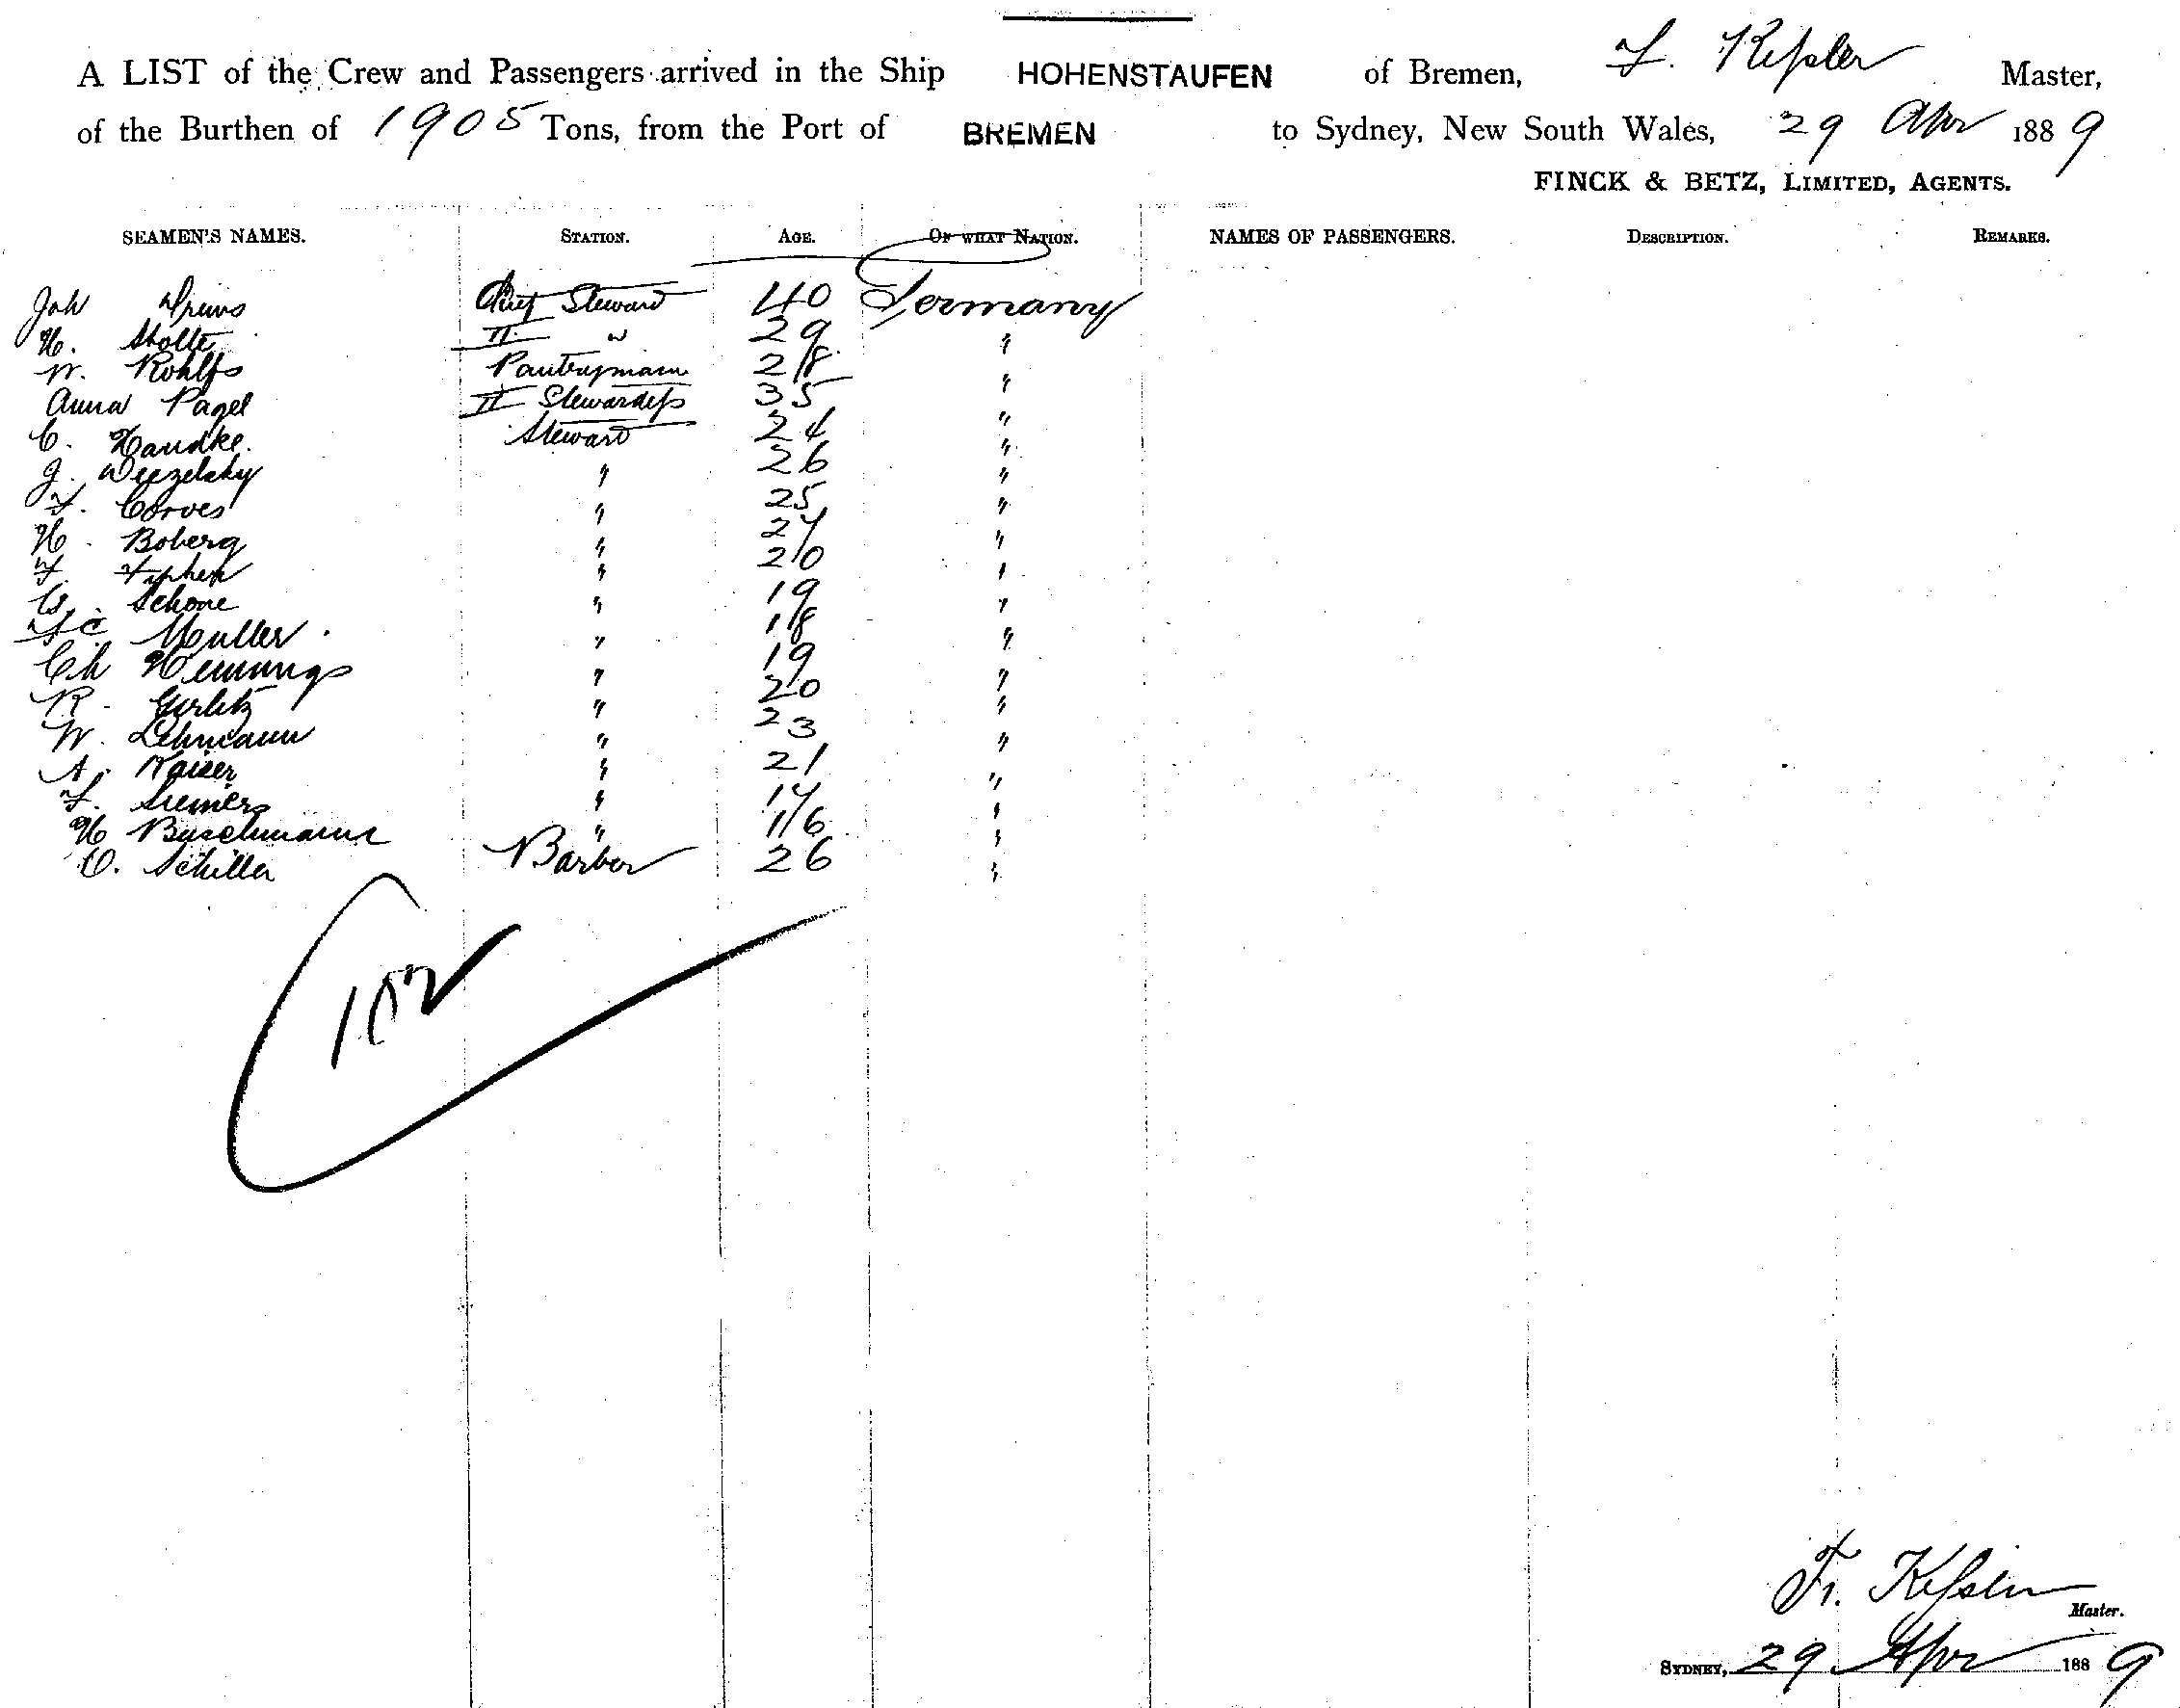 A LIST of the Crew and Passengers arrived in the Ship HOHENSTAUFEN of Bremen, F. Kessler Master,
of the Burthen of 1905 Tons, from the Port of BREMEN to Sydney, New South Wales, 29 Apr 1889
FINCK & BETZ, LIMITED, AGENTS.
SEAMEN'S NAMES. STATION. AGE. OF WHAT NATION. NAMES OF PASSENGERS. DESCRIPTION. REMARKS.
Joh Drews Chief Steward 40 Germany
H. Stolte II " 29 "
W. Rohlfs Pantryman 28 "
Anna Pagel II Stewardess 35 "
C. Handke Steward 24 "
J. 26 "
F. Corves " 25 "
H. Boberg " 27 "
F. " 20 "
G. Schone " 19 "
Muller " 18 "
Ch Hennings " 19 "
R. Gerlitz " 20 "
W. Lehmann " 23 "
A. Kaiser " 21 "
F. Siemers " 17 "
H Buschmann " 16 "
O. Schiller Barber 26 "
102
Fr. Kessler
Master.
SYDNEY, 29 Apr 1889